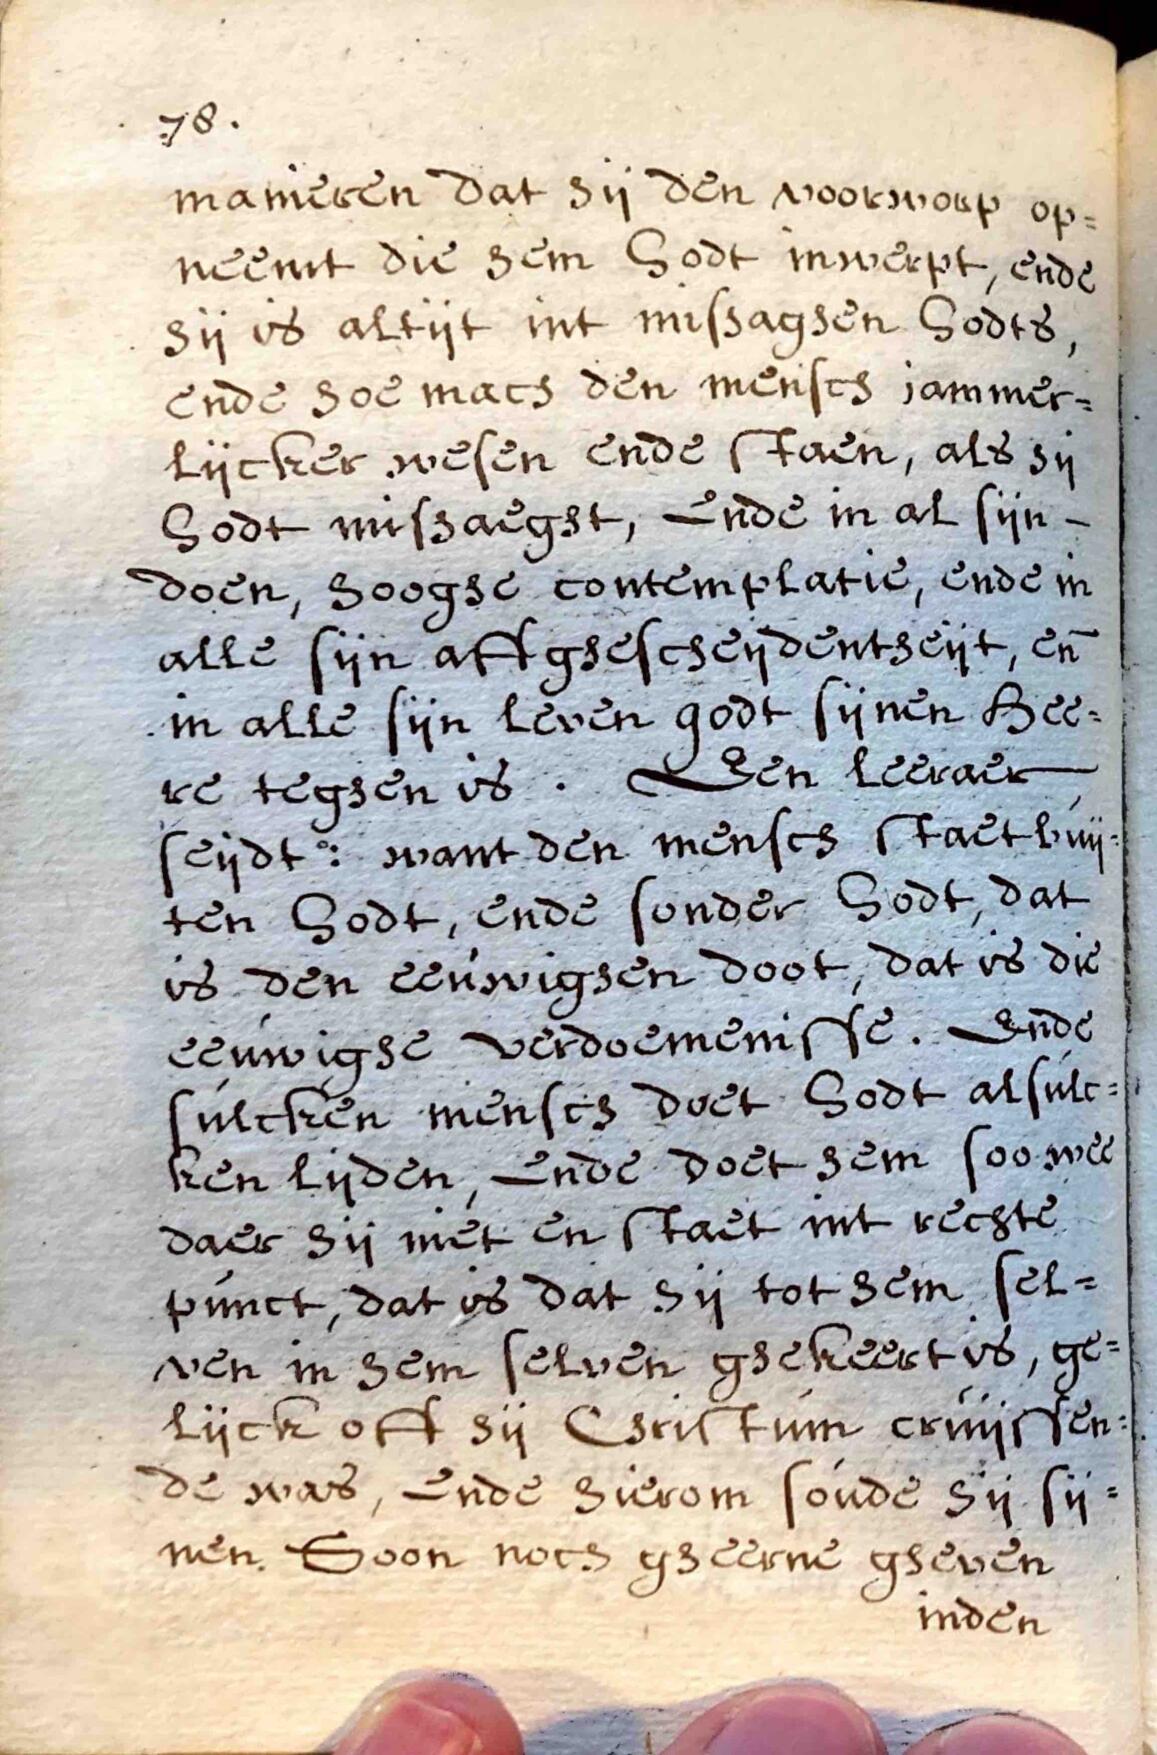 78.
manieren dat hij den voorworp op=
neemt die hem Godt inwerpt, ende
hij is altijt int mishaghen Godts,
ende hoe mach den mensch jammer=
lijcker wesen ende staen, als hij
Godt mishaeght, Ende in al sijn -
doen, hooghe contemplatie, ende in
alle sijn affghescheijdentheijt, en̄
in alle sijn leven godt sijnen Hee=
re teghen is. Een leeraer
seijdt: want den mensch staet buij=
ten Godt, ende sonder Godt, dat
is den eeúwighen doot, dat is die
eeúwighe verdoemenisse. Ende
súlcken mensch doet Godt alsúlc=
ken lijden, Ende doet hem soo wee
daer hij niet en staet int rechte
púnct, dat is dat hij tot hem sel=
ven in hem selven ghekeert is, ge=
lijck off hij Christúm crúijssen=
de was, Ende hierom soúde hij sij=
nen Soon noch gheerne gheven
inden